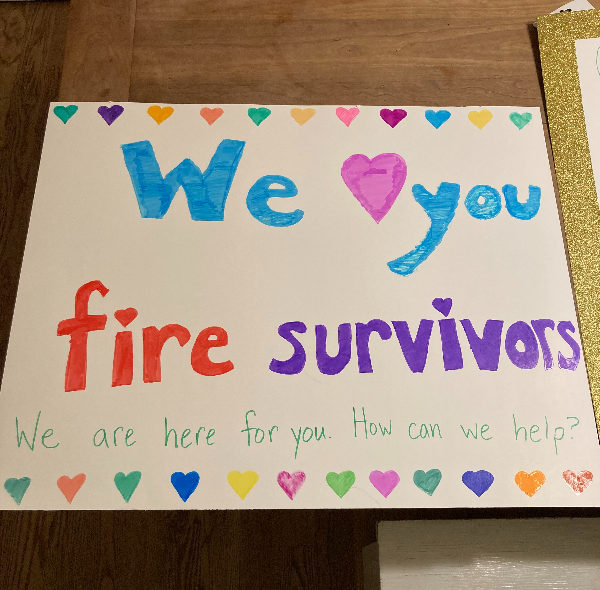 We ♥ you
fire survivors
We are here for you. How can we help?